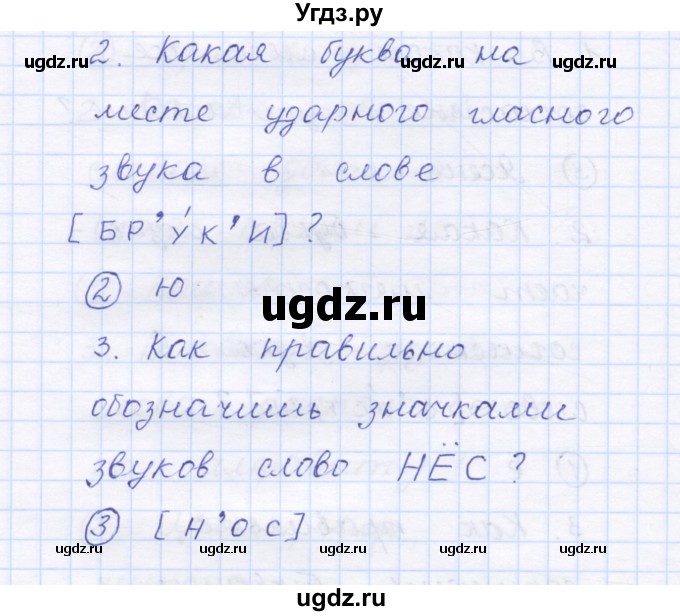 Угдз.ру
2. Какая буква на
месте ударного гласного
звука в слове
[БР’У́К’И]?
② Ю
3. Как правильно
обозначишь значками
звуков слово НЁС?
③ [Н’ОС]
ugdz.ru ugdz.ru ugdz.ru
ugdz.ru ugdz.ru ugdz.ru
ugdz.ru
ugdz.ru ugdz.ru ugdz.ru
ugdz.ru ugdz.ru ugdz.ru
Угдз.ру